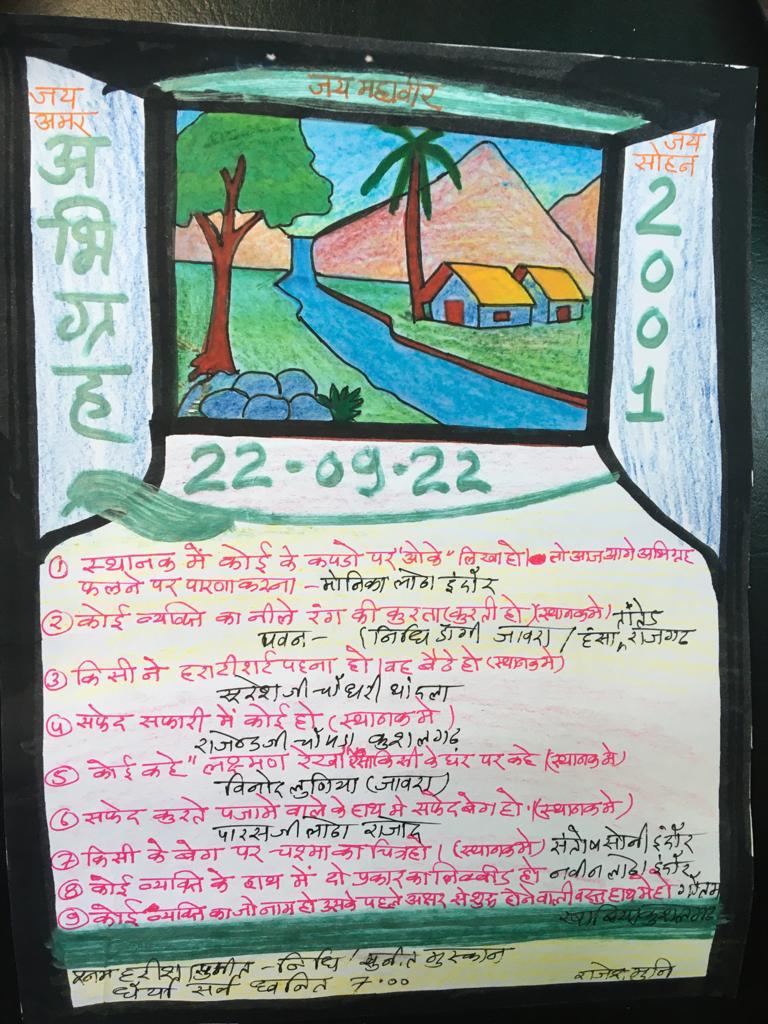 जय महावीर
जय
अमर
अभिग्रह
जय
सोहन
2001
22-09-22
① स्थानक में कोई के कपडो पर "ओके" लिखा हो तो आज आगे अभिग्रह
फलने पर पारणा करना - मोनिका लोढा इंदौर
② कोई व्यक्ति का नीले रंग की कुरता (कुरती हो) (स्थानक मे) तांतेड
पवन - (निधि डांगी जावरा) / हंसा, राजगढ
③ किसी ने हरा टीशर्ट पहना हो। वह बैठे हो (स्थानक मे)
सुरेश जी चौधरी थांदला
④ सफेद सफारी में कोई हो (स्थानक मे)
राजेन्द्रजी चौपडा कुशलगढ
⑤ कोई कहे "लक्ष्मण रेखा" किसी के घर पर कहे (स्थानक मे)
विनोद लुणिया (जावरा)
⑥ सफेद कुरते पजामे वाले के हाथ मे सफेद बेग हो (स्थानक मे)
पारसजी लोढा राजोद
⑦ किसी के बेग पर चश्मा का चित्र हो। (स्थानक मे) संतोष सोनी इंदौर
⑧ कोई व्यक्ति के हाथ में दो प्रकार का हो नवीन लोढा इंदौर
⑨ कोई व्यक्ति का जो नाम हो उसके पहले अक्षर से शुरु होने वाली वस्तु हाथ मे हो गौतम
कुशलगढ
हरीश सुमीत - निधि सुनीत मुस्कान
धैर्या सर्व ध्वनित 7:00
राजेश मुनि